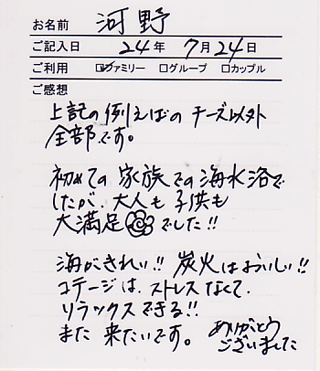 お名前 河野
ご記入日 24年 7月24日
ご利用 ☑ファミリー □グループ □カップル
ご感想
上記の例えばの チーズ以外
全部です。
初めての 家族での海水浴で
したが、大人も 子供も
大満足でした!!
海がきれい!! 炭火はおいしい!!
コテージは、ストレスなくて、
リラックスできる!!
また 来たいです。 ありがとう
ございました